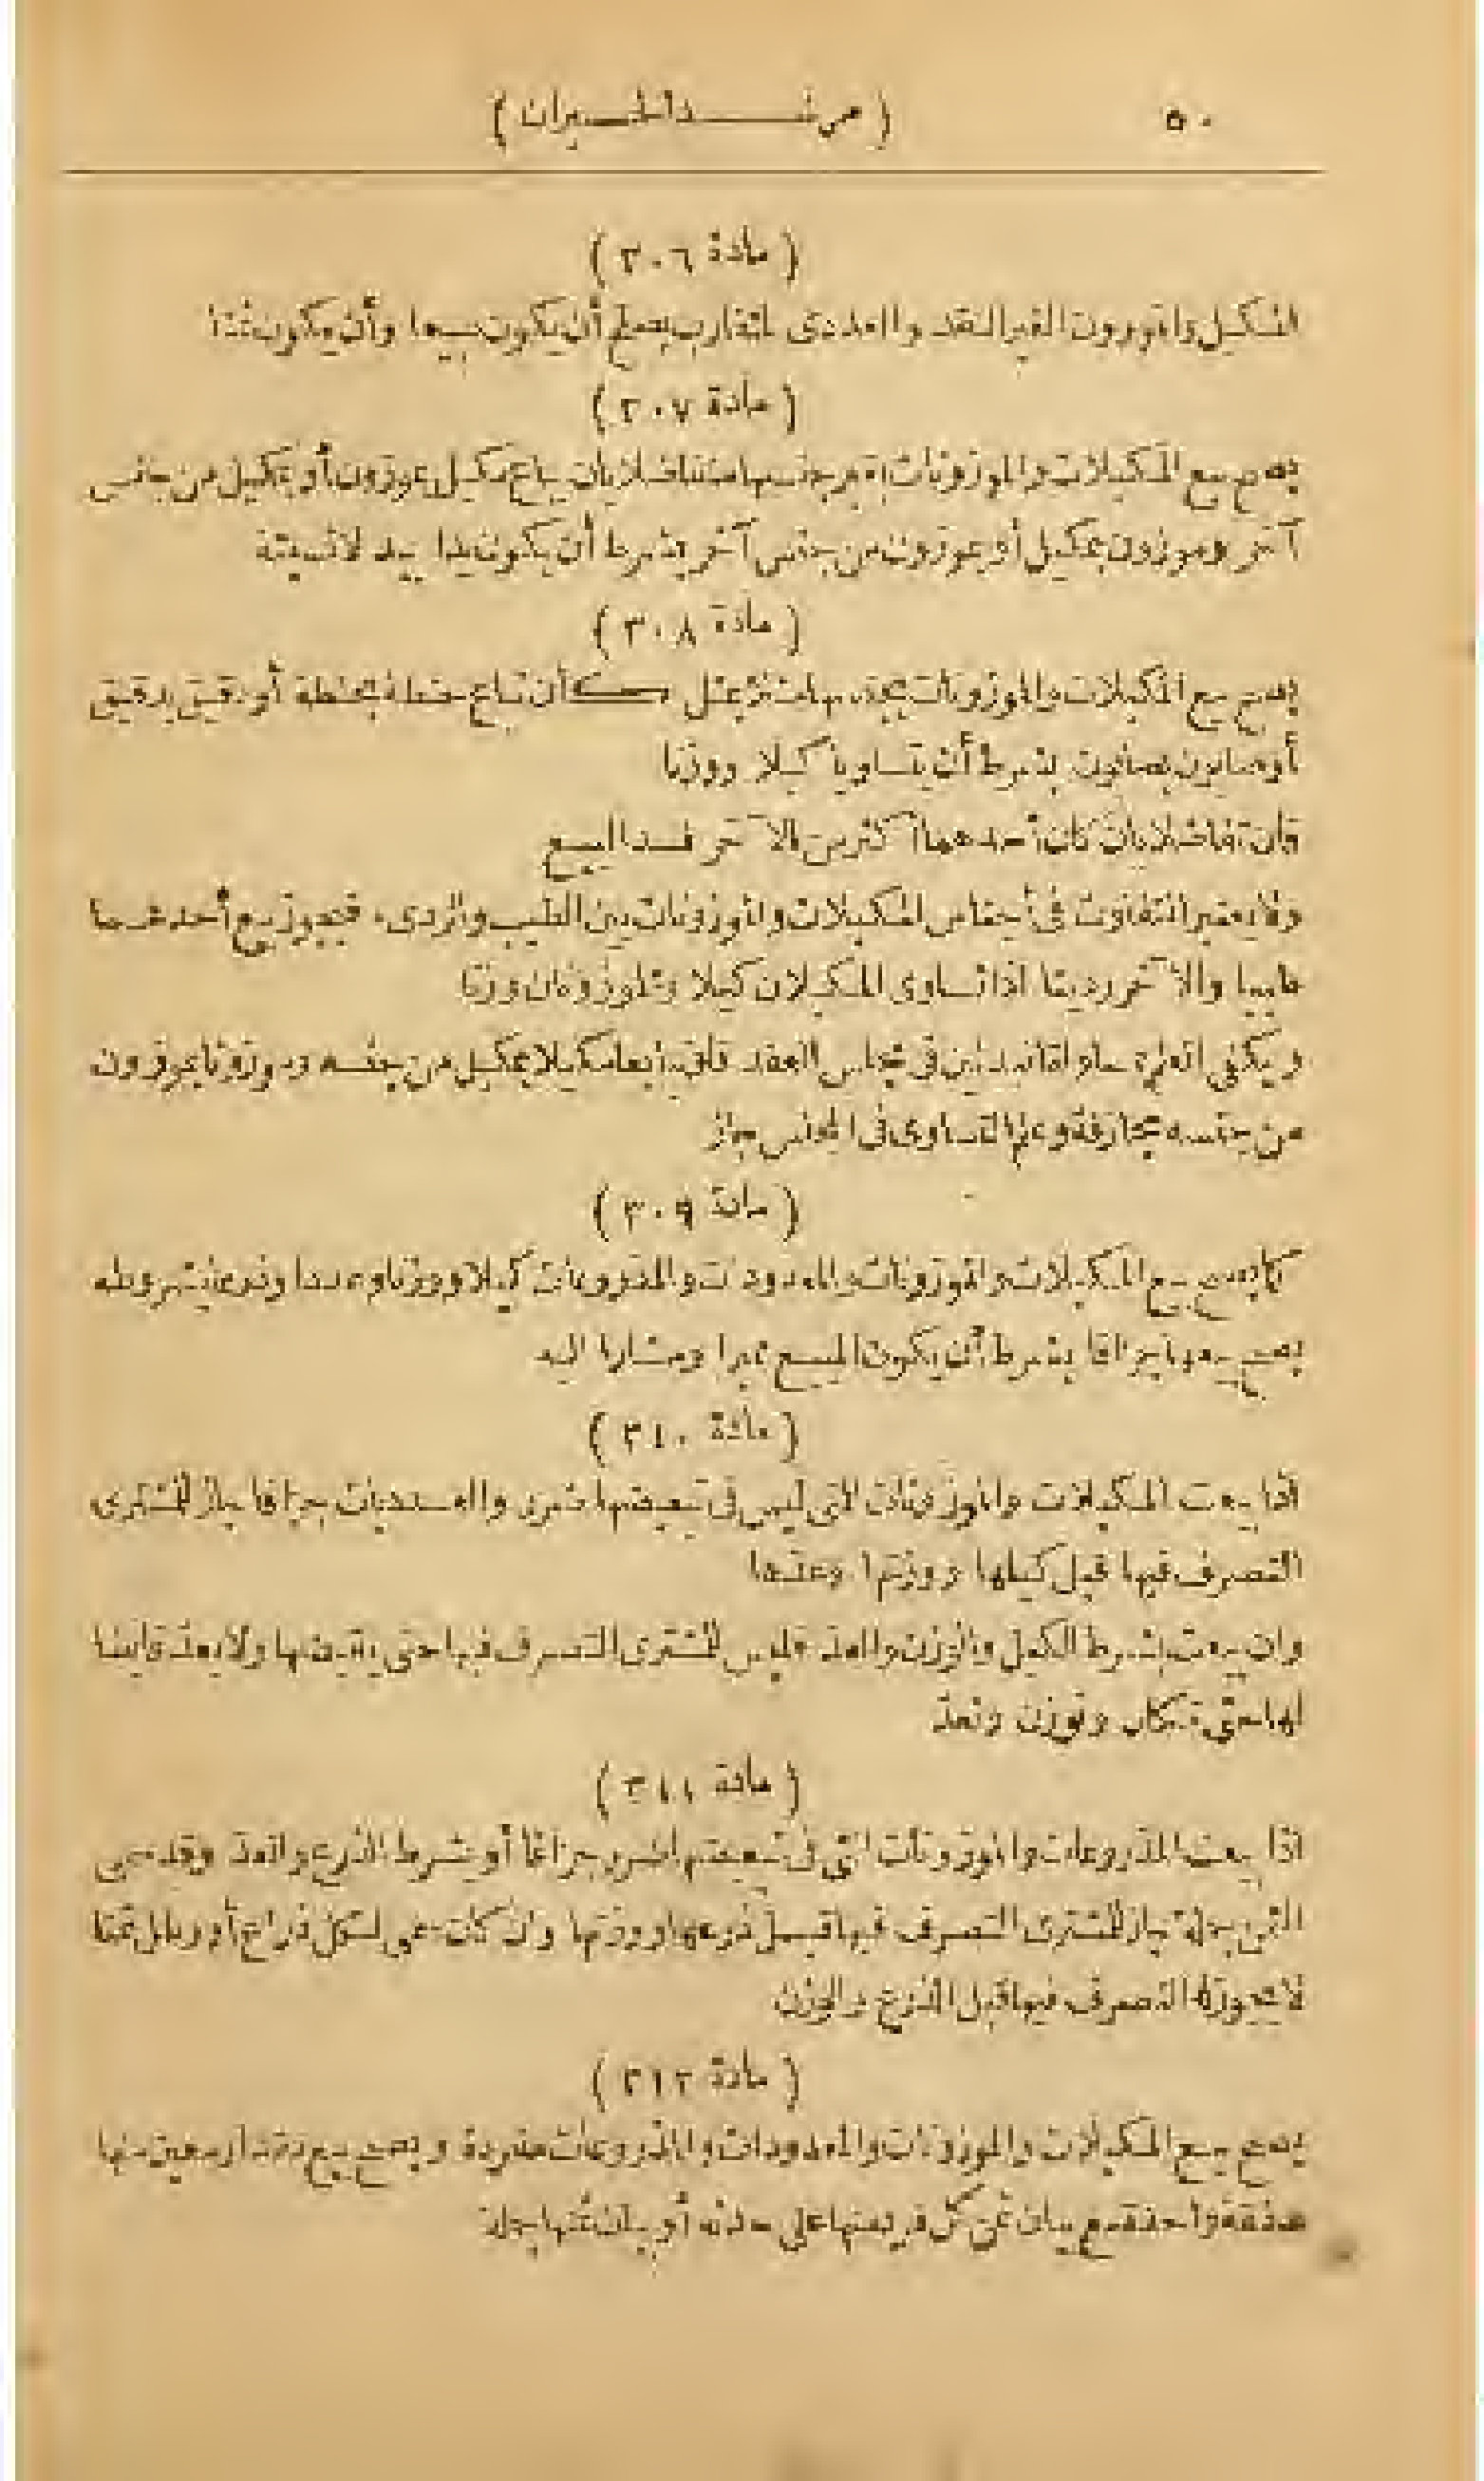 ٥٠
( مرشد الحيران )
( مادة ٣٠٦ )
المكيل والموزون الغير النقد والعددى المتقارب يصلح أن يكون مبيعا وأن يكون ثمنا
( مادة ٣٠٧ )
يصح بيع المكيلات والموزونات بغير جنسها متفاضلا بأن يباع مكيل بموزون أو بمكيل من جنس
آخر وموزون بمكيل أو بموزون من جنس آخر بشرط أن يكون يدا بيد لا نسيئة
( مادة ٣٠٨ )
يصح بيع المكيلات والموزونات بجنسها مثلا بمثل كأن تباع حنطة بحنطة أو دقيق بدقيق
أو صابون بصابون بشرط أن يتساويا كيلا ووزنا
فان تفاضلا بان كان أحدهما أكثر من الآخر فسد البيع
ولا يعتبر التفاوت فى أجناس المكيلات والموزونات بين الطيب والردىء فيجوز بيع أحدهما
طيبا والآخر رديئا اذا تساوى المكيلان كيلا والموزونان وزنا
ويكفى العلم بمساواة البدلين فى مجلس العقد فلو تبايعا مكيلا بمكيل من جنسه وموزونا بموزون
من جنسه مجازفة وعلم التساوى فى المجلس جاز
( مادة ٣٠٩ )
كما يصح بيع المكيلات والموزونات والمعدودات والمذروعات كيلا ووزنا وعددا وذرعا بشروطه
يصح بيعها جزافا بشرط أن يكون المبيع مميزا ومشارا اليه
( مادة ٣١٠ )
اذا بيعت المكيلات والموزونات التى ليس فى تبعيضها ضرر والعدديات جزافا جاز للمشترى
التصرف فيها قبل كيلها ووزنها وعدها
وان بيعت بشرط الكيل والوزن والعد فليس للمشترى التصرف فيها حتى يقبضها ولا يعد قابضا
لها حتى تكال وتوزن وتعد
( مادة ٣١١ )
اذا بيعت المذروعات والموزونات التى فى تبعيضها ضرر جزافا أو بشرط الذرع والعد وقد سمى
الثمن جملة جاز للمشترى التصرف فيها قبل ذرعها ووزنها وان كان سمى لكل ذراع أو رطل ثمنا
لا يجوز له التصرف فيها قبل الذرع والوزن
( مادة ٣١٢ )
يصح بيع المكيلات والموزونات والمعدودات والمذروعات منفردة ويصح بيع مقدار معين منها
صفقة واحدة مع بيان ثمن كل فرد منها على حدته أو بيان ثمنها جملة